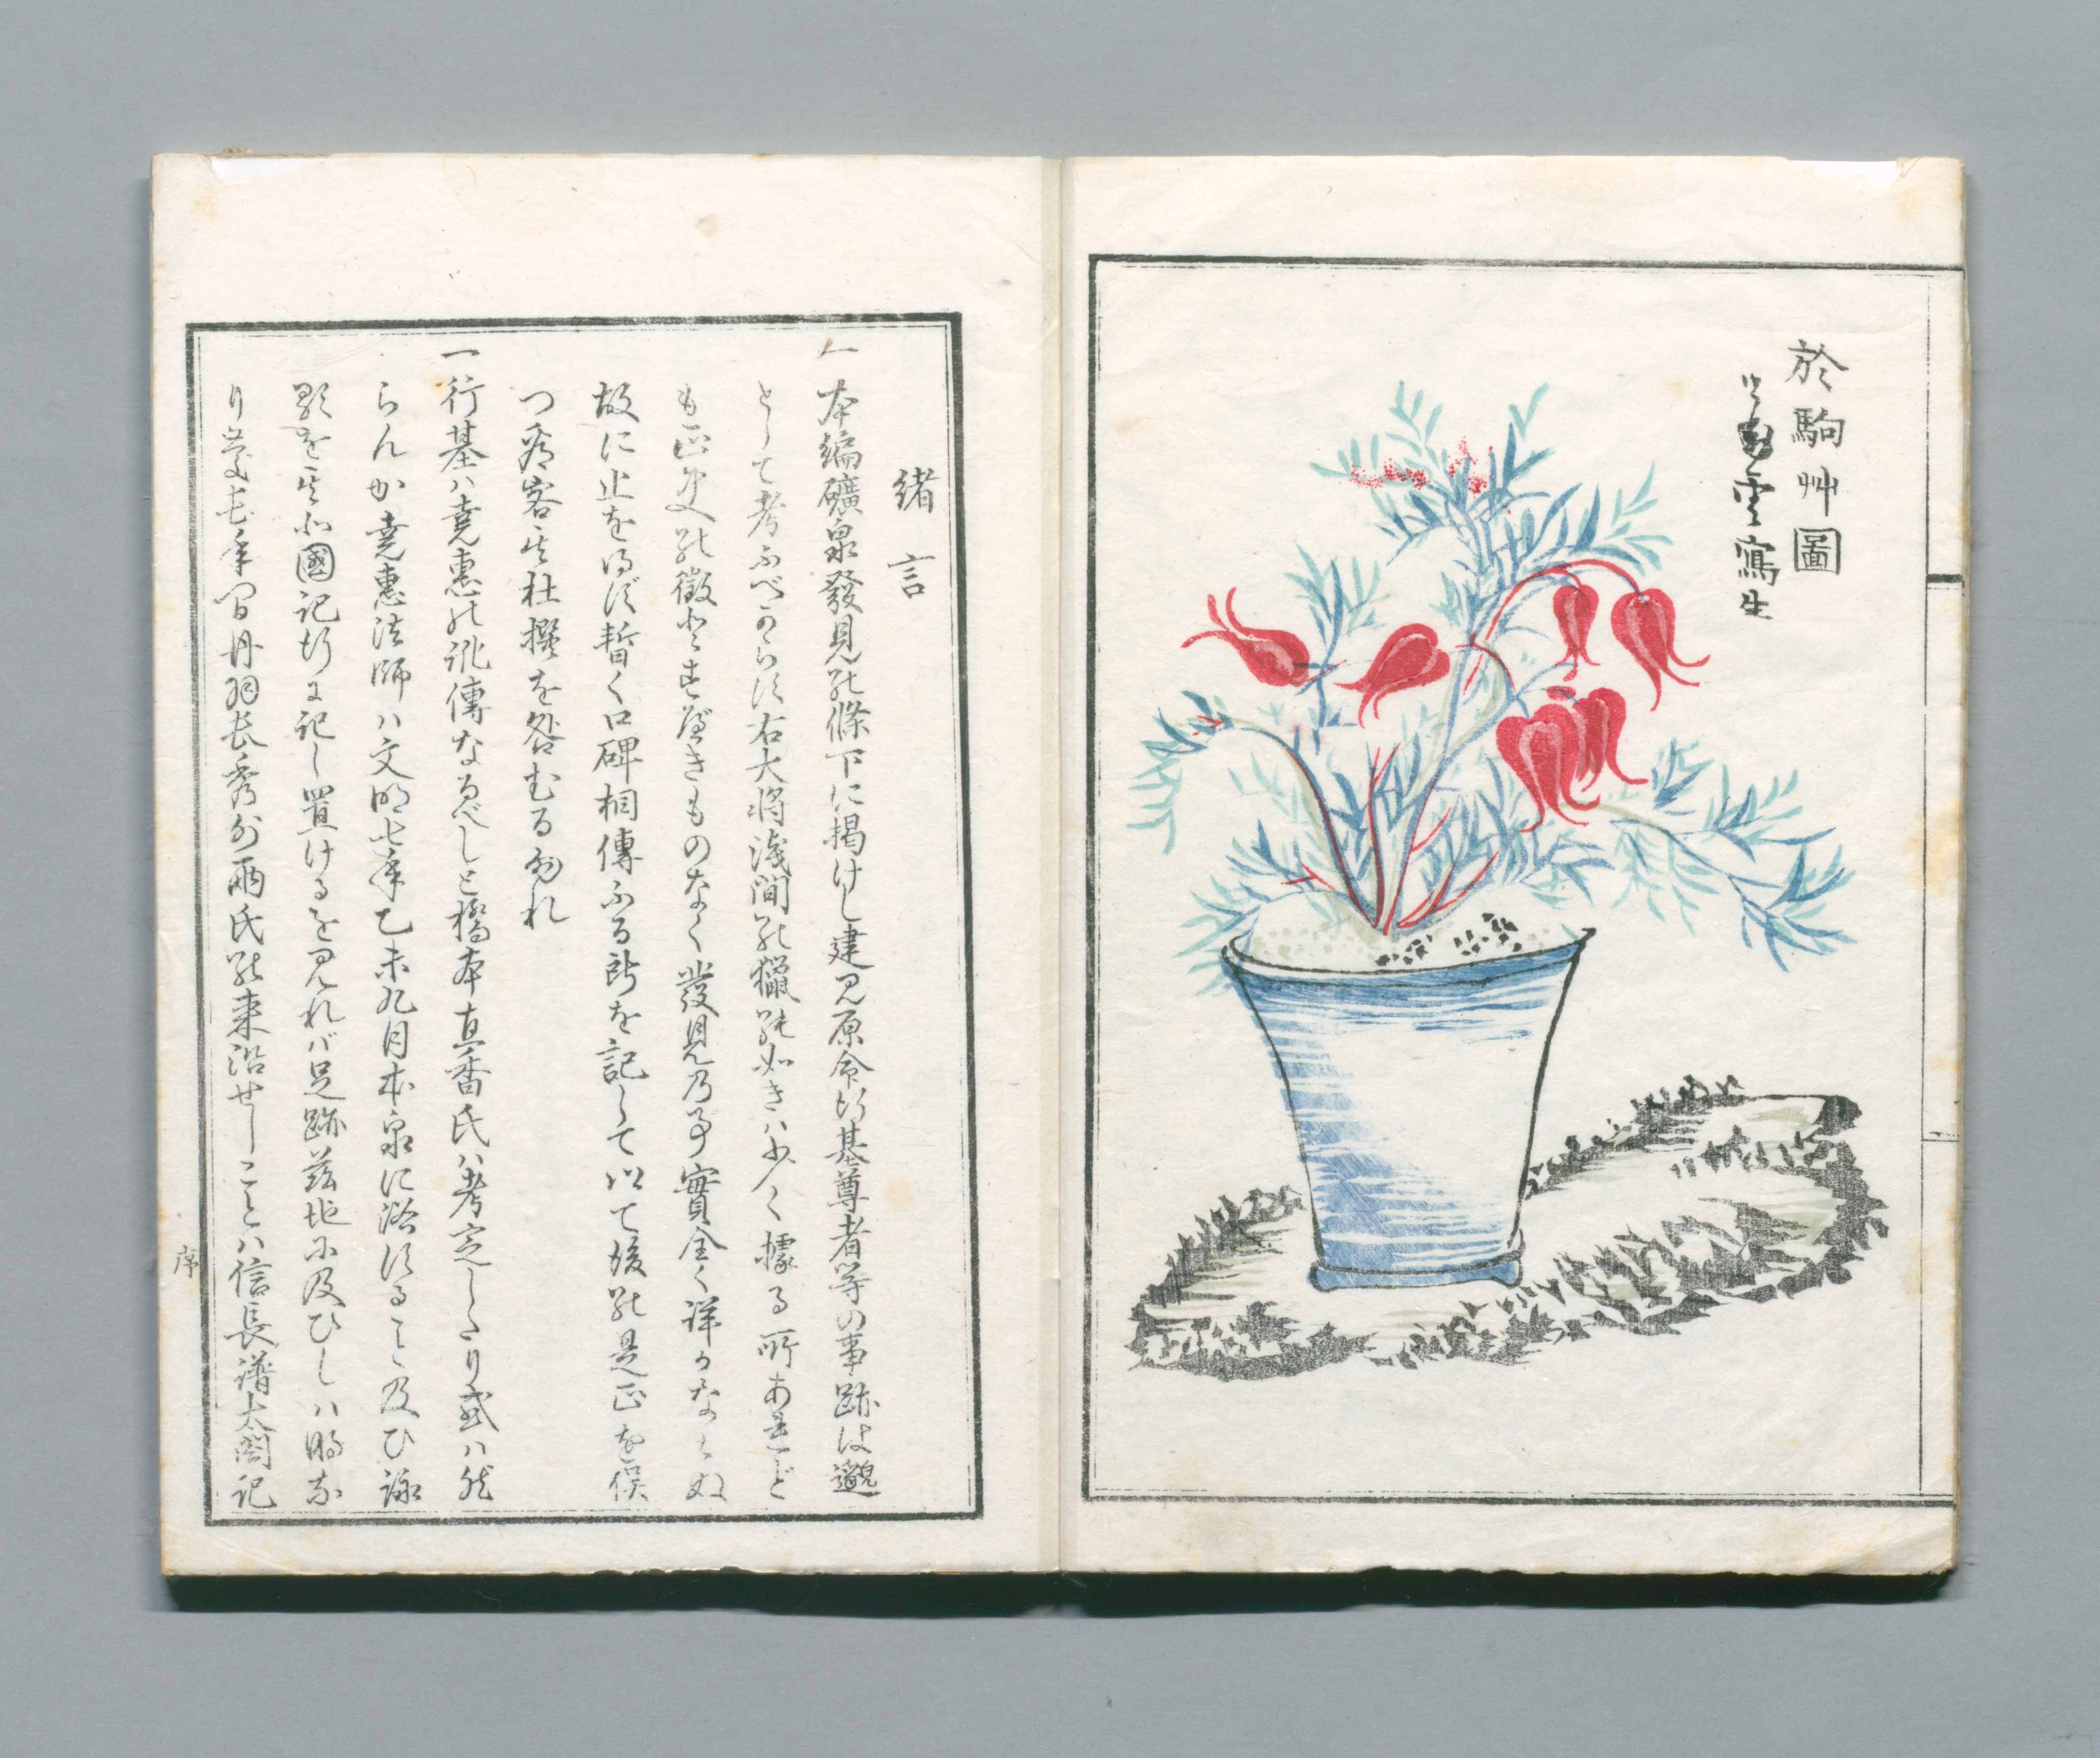 於駒艸圖
雲寫生
緒言
一本編礦泉發見の條下に揭けし建見原命行基尊者等の事跡は邈
として考ふべからす右大將淺間の獵の如きハ少しく據る所あれど
も正史の徵とすべきものなく發見の事實全く詳かならぬ
故に止を得す暫く口碑相傳ふる所を記して以て後の是正を俟
つ看客其杜撰を咎むる勿れ
一行基ハ堯惠の訛傳なるべしと橋本直香氏ハ考定したり或ハ然
らんか堯惠法師ハ文明七年乙未九月本泉に浴すること及ひ詠
歌を其北國記行に記し置けるを見れバ足跡茲地に及ひしハ明か
り 年間丹羽長秀 兩氏の來浴せしことハ信長譜太閤記
序